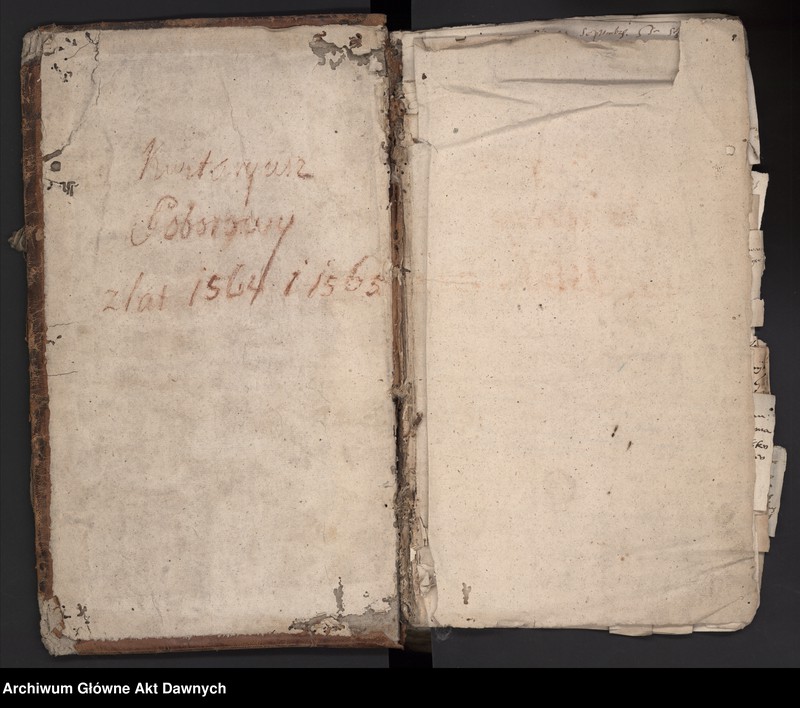 Kwitaryusz
Poborowy
z lat 1564 i 1565
Archiwum Główne Akt Dawnych